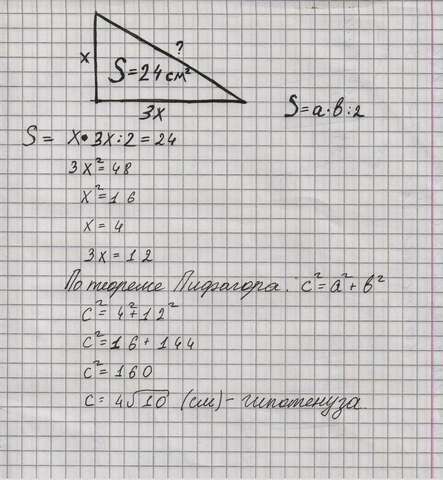 ?
x
S=24 см²
3x
S=a·b:2
S= x·3x:2=24
3x²=48
x²=16
x=4
3x=12
По теореме Пифагора: c²=a²+b²
c²=4²+12²
c²=16+144
c²=160
c=4√10 (см)-гипотенуза.